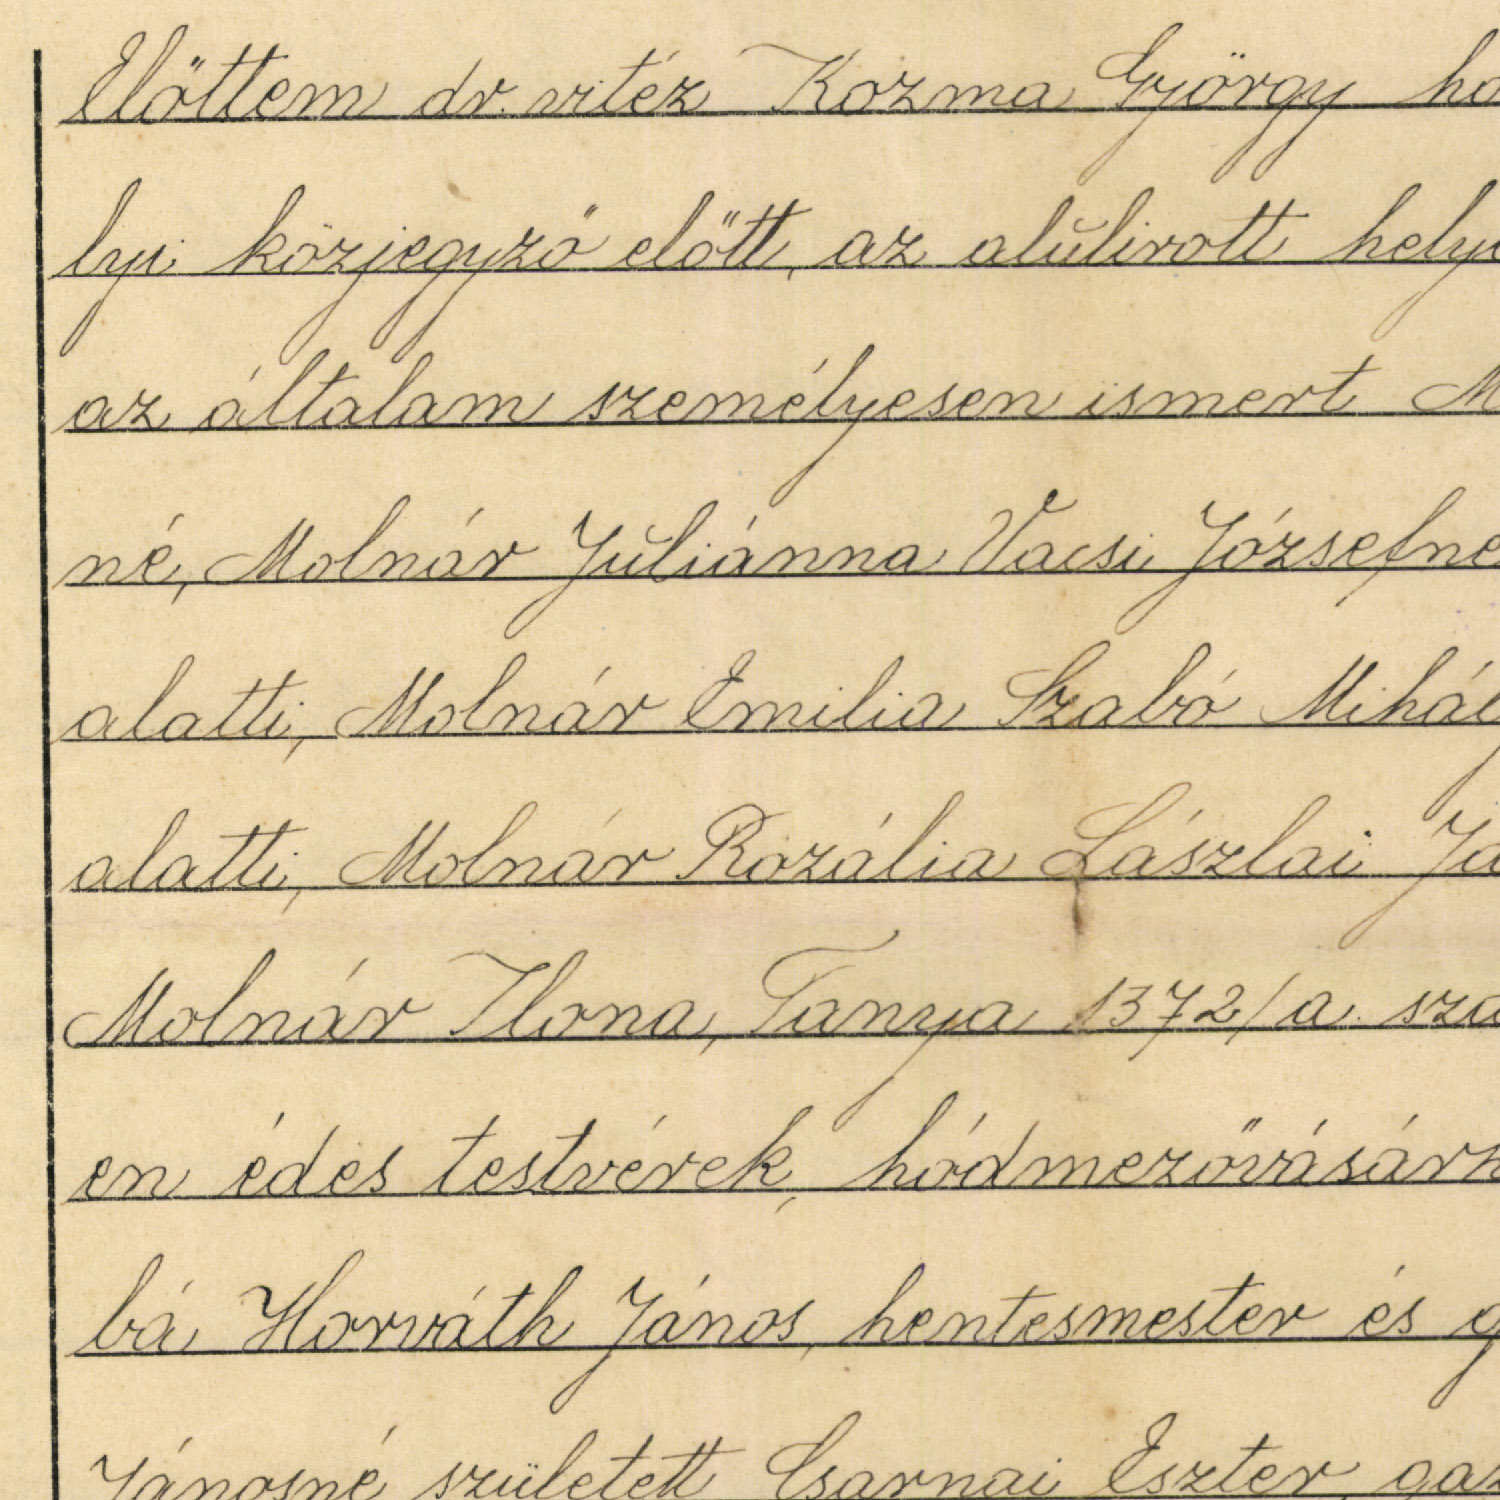 Előttem dr. vitéz Kozma György hó
lyi közjegyző előtt, az alulirott helye
az általam személyesen ismert M
né, Molnár Juliánna Vacsi Józsefné
alatti, Molnár Emilia Szabó Mihál
alatti, Molnár Rozália Lászlai Já
Molnár Ilona, Tanya 1372/a. szá
en édes testvérek, hódmezővásárh
bá Horváth János, hentesmester és g
Jánosné született Csarnai Eszter, gaz